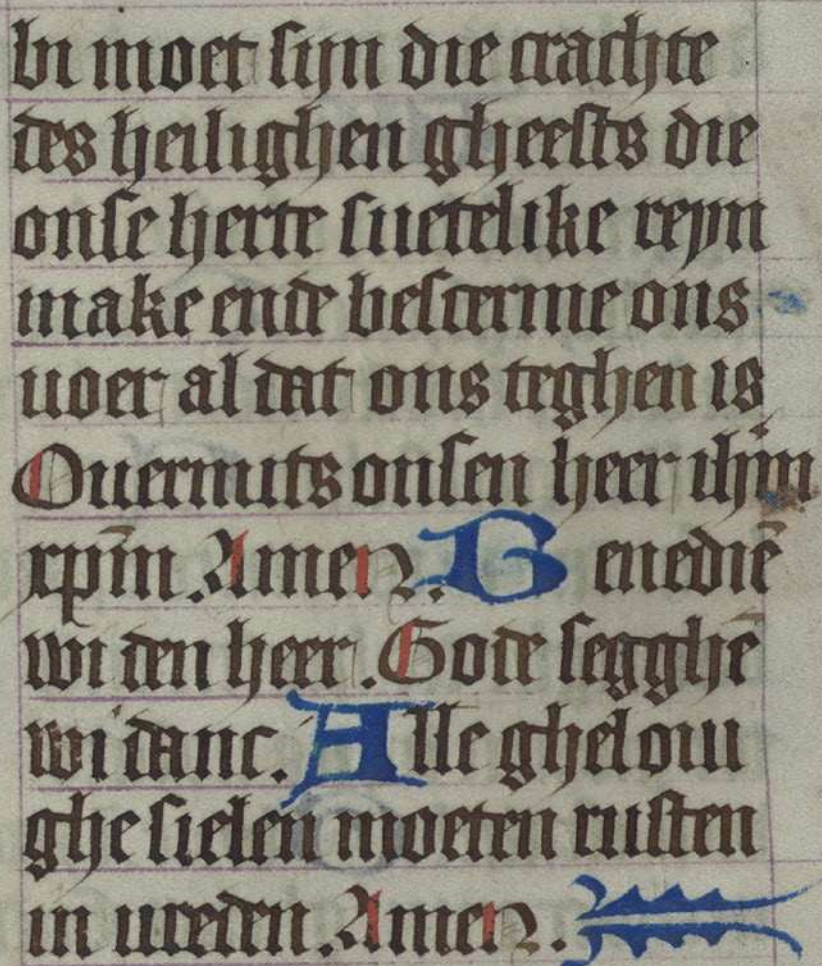 bi moet sijn die crachte
des heilighen gheests die
onse herte suetelike reyn
make ende bescerme ons
uoer al dat ons teghen is
Ouermits onsen heer ihm̄
xp̄m. Amen. Benediē
wi den heer. Gode segghē
wi danc. Alle gheloui
ghe sielen moeten rusten
in ureden. Amen.